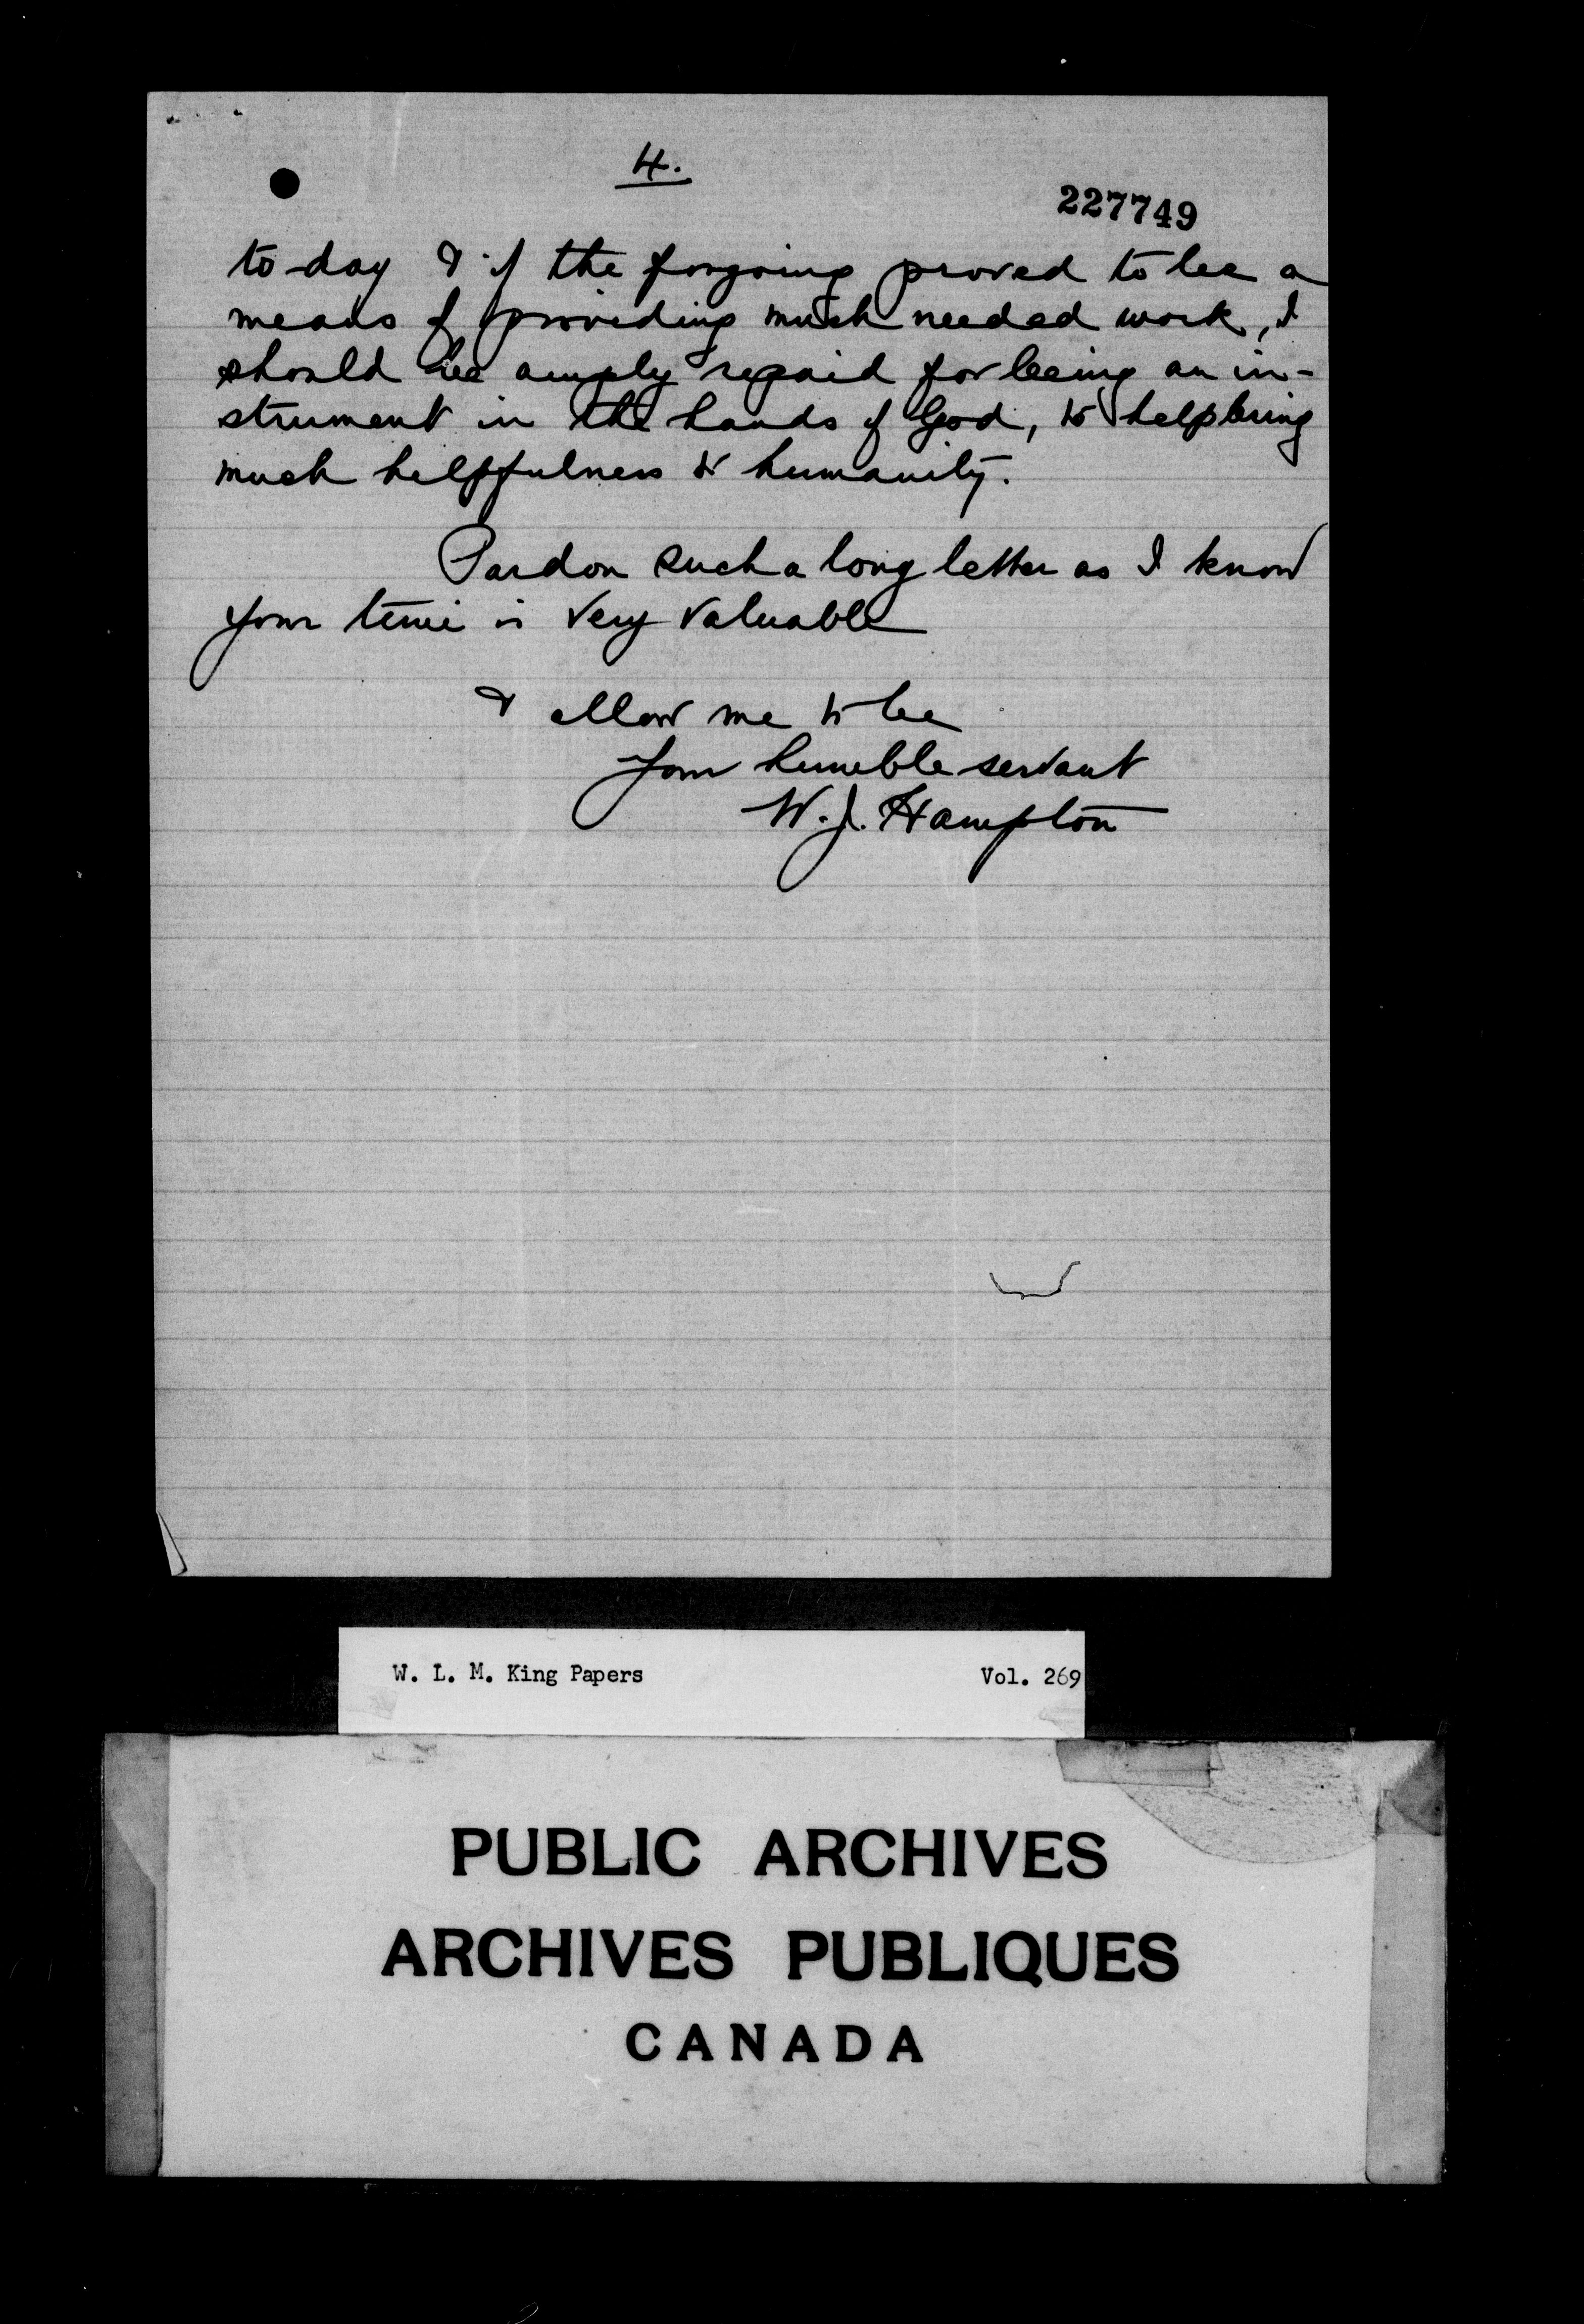 4.
227749
to-day & if the forgoing proved to be a
means of providing much needed work, I
should be amply repaid for being an in-
strument in the hands of God, to help bring
much helpfulness to humanity.
Pardon such a long letter as I know
your time is very valuable
& allow me to be
Your humble servant
W. J. Hampton
W. L. M. King Papers Vol. 269
PUBLIC ARCHIVES
ARCHIVES PUBLIQUES
CANADA